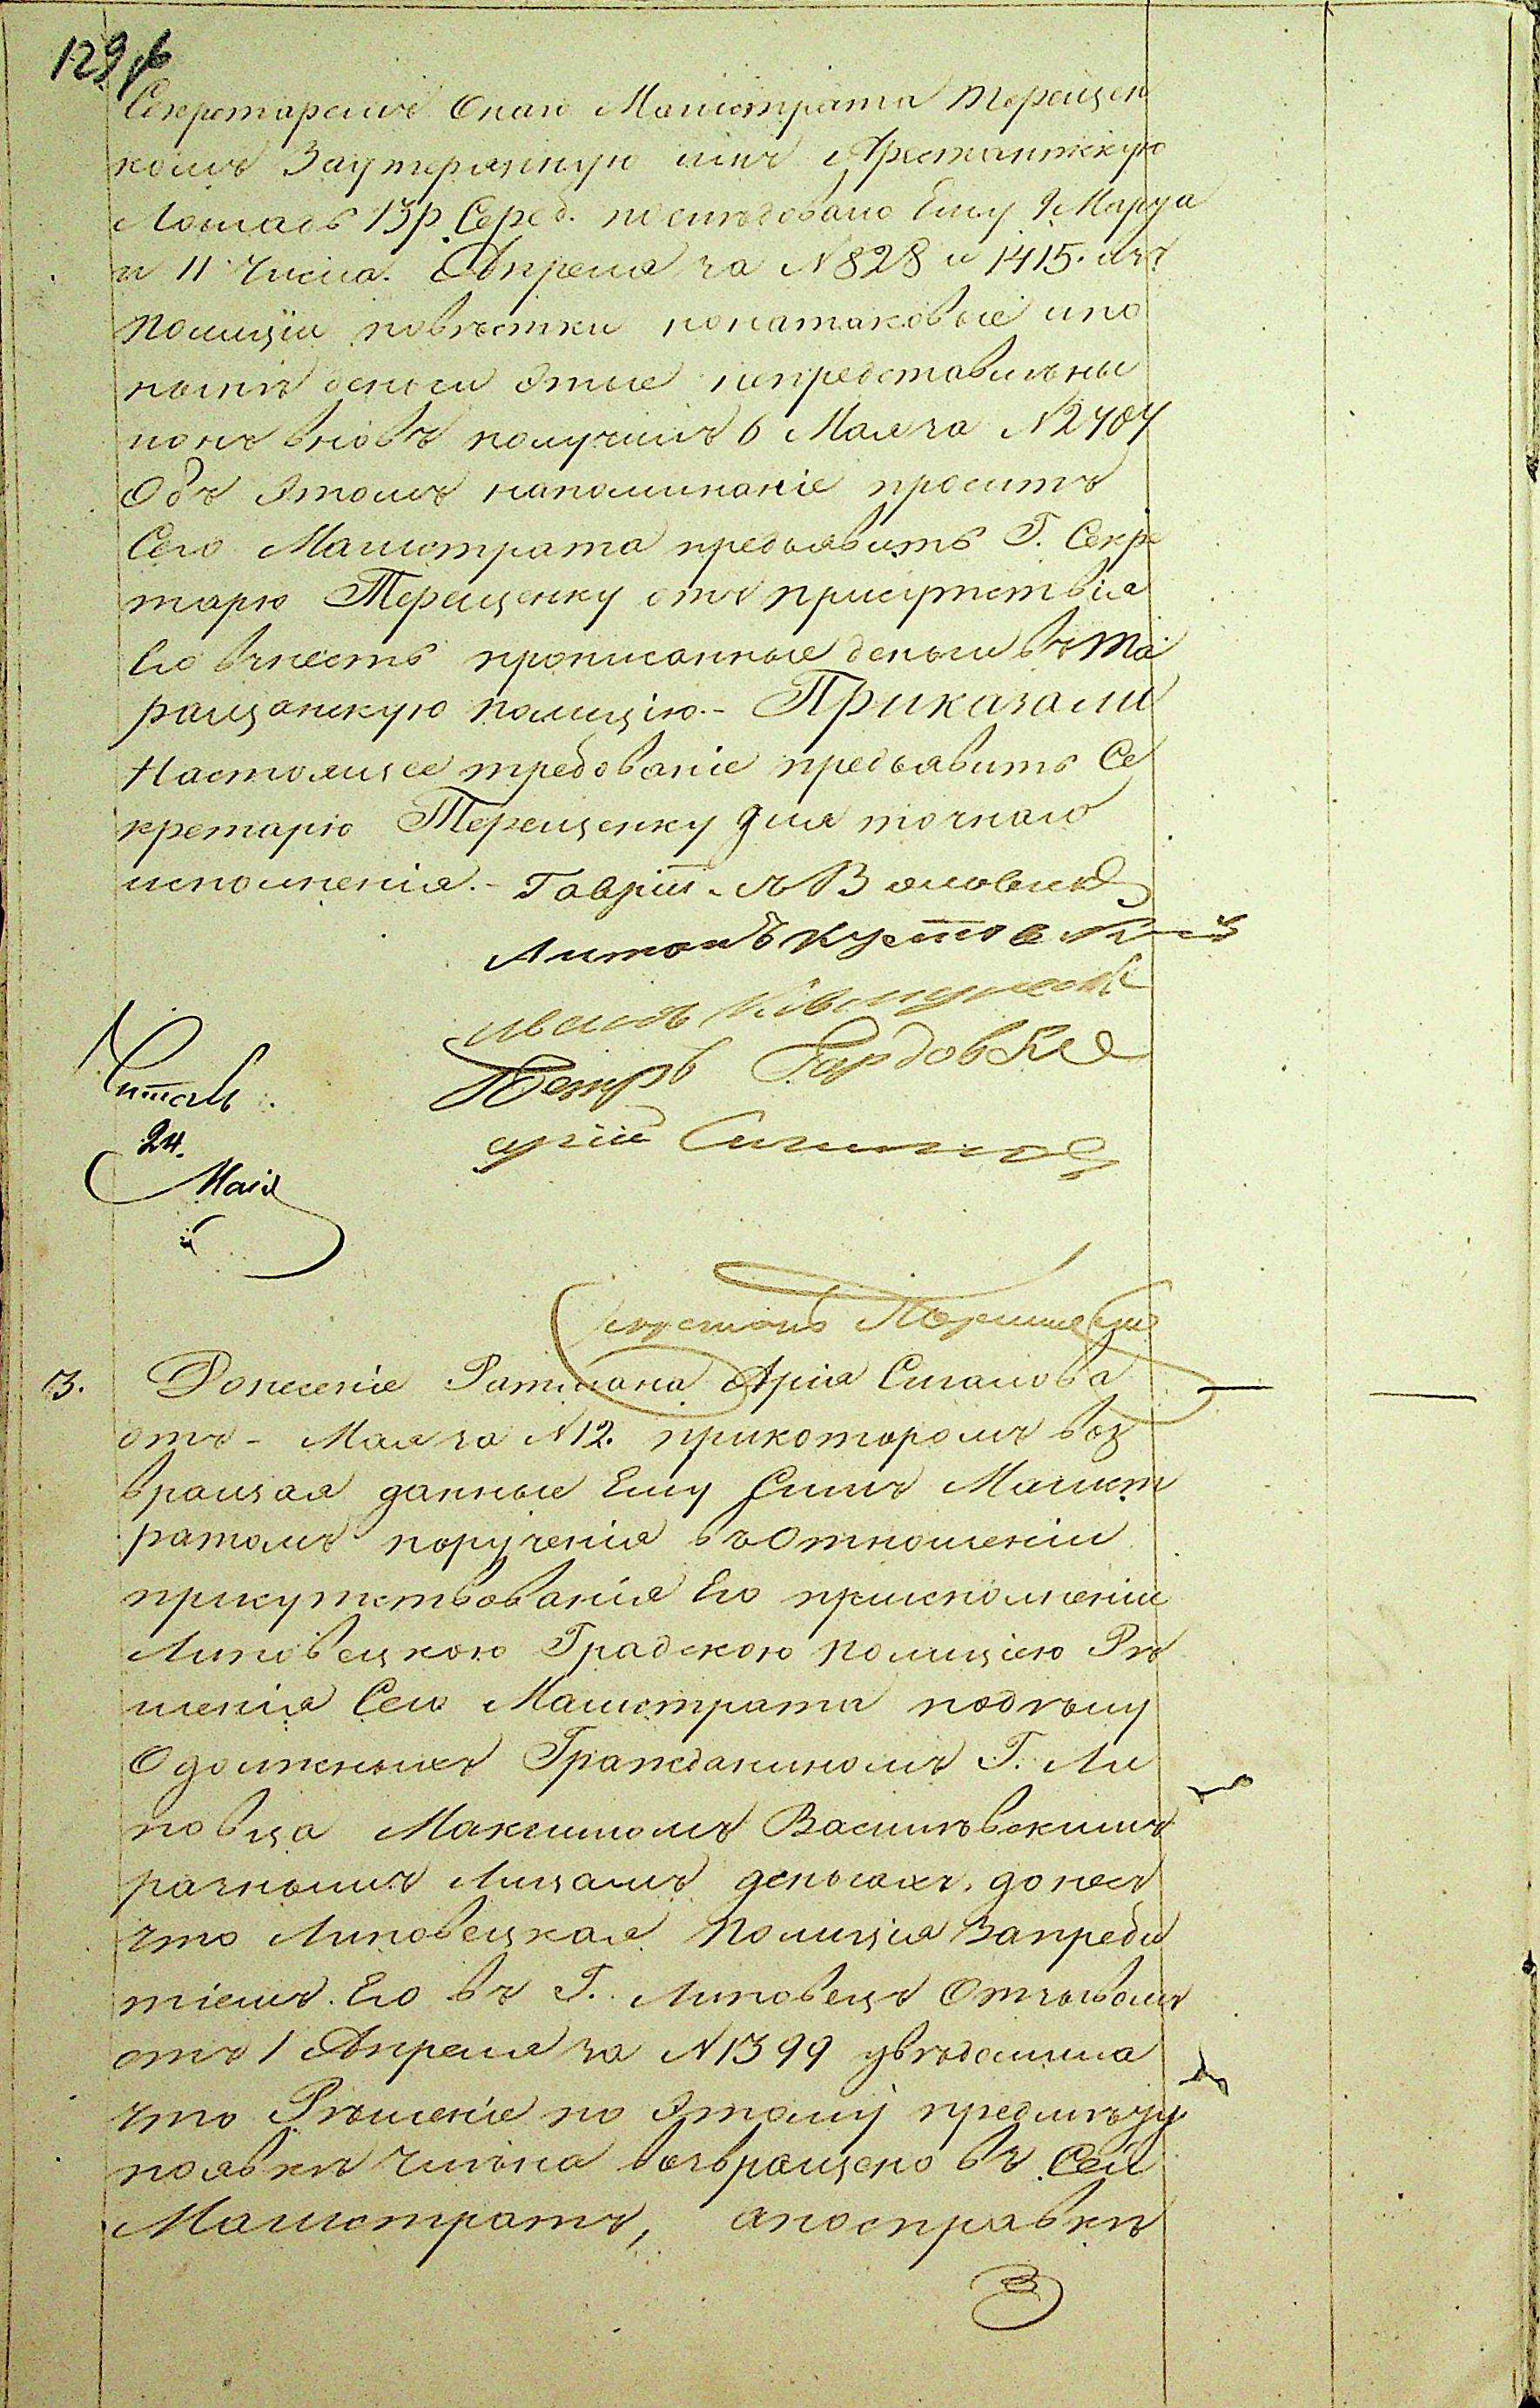 129
Секретаремъ Онаго Магистрата Терещен
комъ Заутерянную имъ Арестантскую
Лошадь 13 р. Сереб. последовало Ему 9 Марта
и 11 числа Апреля за N 828 и 1415. изъ
Полиціи повѣстки нонатаковые ипо
нынѣ деньги этие непредставилъ
нонъ вновь получилъ 6 Мая за N 2404
Объ этомъ напоминаніе проситъ
Сего Магистрата предъявить Г. Секре
тарю Терещенку отъ присутствія
Его внесть прописанные деньги въ Та
ращанскую полицію.- Приказали
Настоящее требованіе предъявить Се
кретарю Терещенку для точнаго
исполненія.-
Антонъ
Иванъ
Петръ
Читалъ
24.
Маія
3. Донесеніе Ратмана Арія Сиганова
отъ - Мая за N 12. прикоторомъ воз
вращая данные Ему Симъ Магист
ратомъ порученія въ Отношеніи
присутствованія Его приисполненіи
Липовецкою Градскою полициею Рѣ
шенія Сего Магистрата поделу
О должныхъ Гражданиномъ Г. Ли
повца Максимомъ Василевскимъ
разнымъ Лицамъ деньгахъ, донесъ
что Липовецкая Полиция Заприбы
тіемъ Его въ Г. Липовецъ Отзывомъ
отъ 1 Апреля за N 1399 уведомила
что Рѣшеніе по этому предмету
появки члена возвращено въ Сей
Магистратъ, апосправки